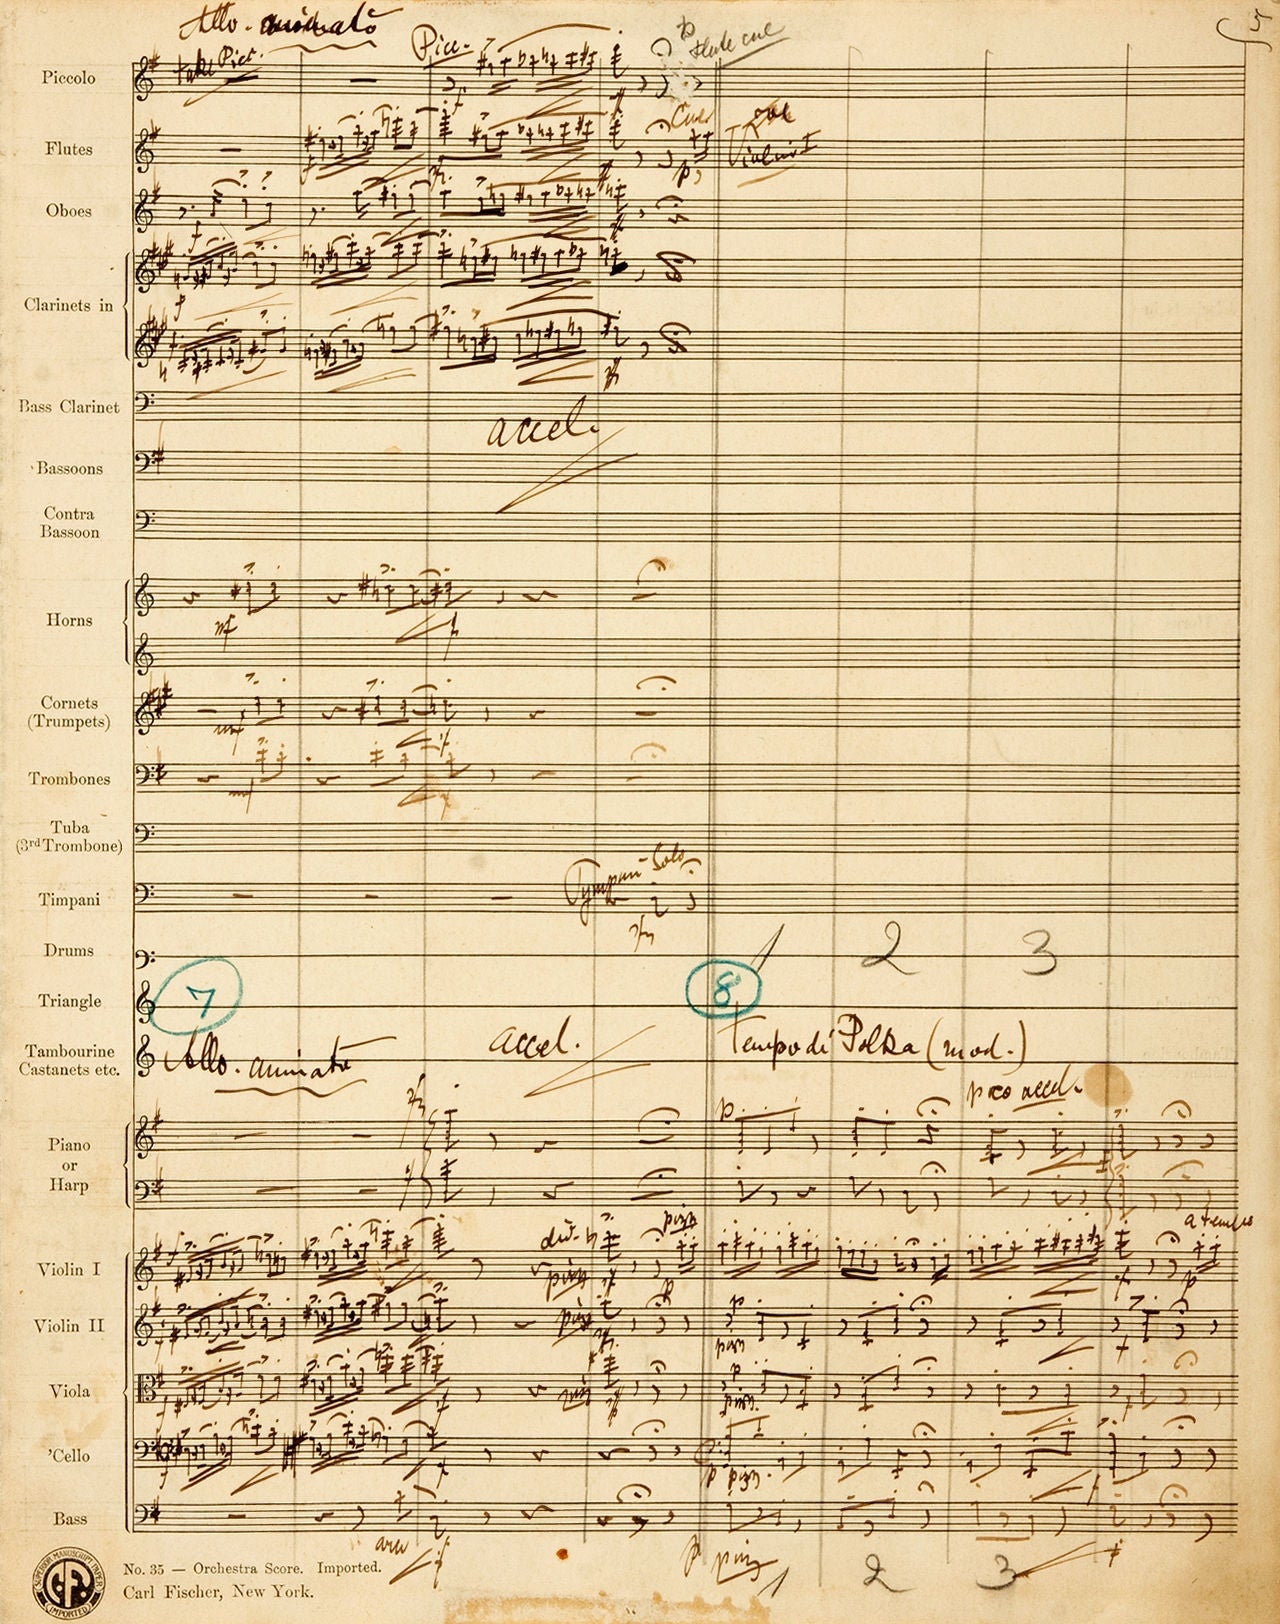 Allo. animato
5
take Picc.
Picc.
p
flute cue
Piccolo
f
Cues
Flutes
Violin I
f
p
Oboes
f
Clarinets in
f
Bass Clarinet
accel.
Bassoons
Contra
Bassoon
Horns
mf
f
Cornets
(Trumpets)
mf
Trombones
mf
Tuba
(3rd Trombone)
Tympani Solo
Timpani
Drums
1 2 3
7
8
Triangle
Allo. animato
accel.
Tempo di Polka (mod.)
Tambourine
Castanets etc.
poco accel.
p
Piano
or
Harp
a tempo
div.
pizz
Violin I
pizz
p
Violin II
pizz
p
pizz
Viola
p
pizz.
'Cello
p pizz.
Bass
arco
p pizz
1 2 3
SUPERIOR MANUSCRIPT PAPER
CF
IMPORTED
No. 35 — Orchestra Score. Imported.
Carl Fischer, New York.